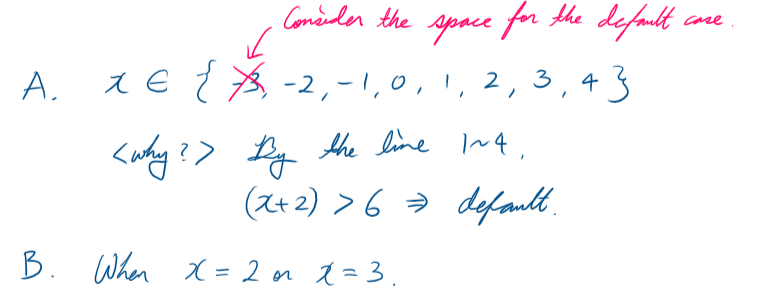 Consider the space for the default case.
A. x ∈ { -3, -2, -1, 0, 1, 2, 3, 4 }
<why?> By the line 1~4,
(x+2) > 6 ⇒ default.
B. When x = 2 or x = 3.